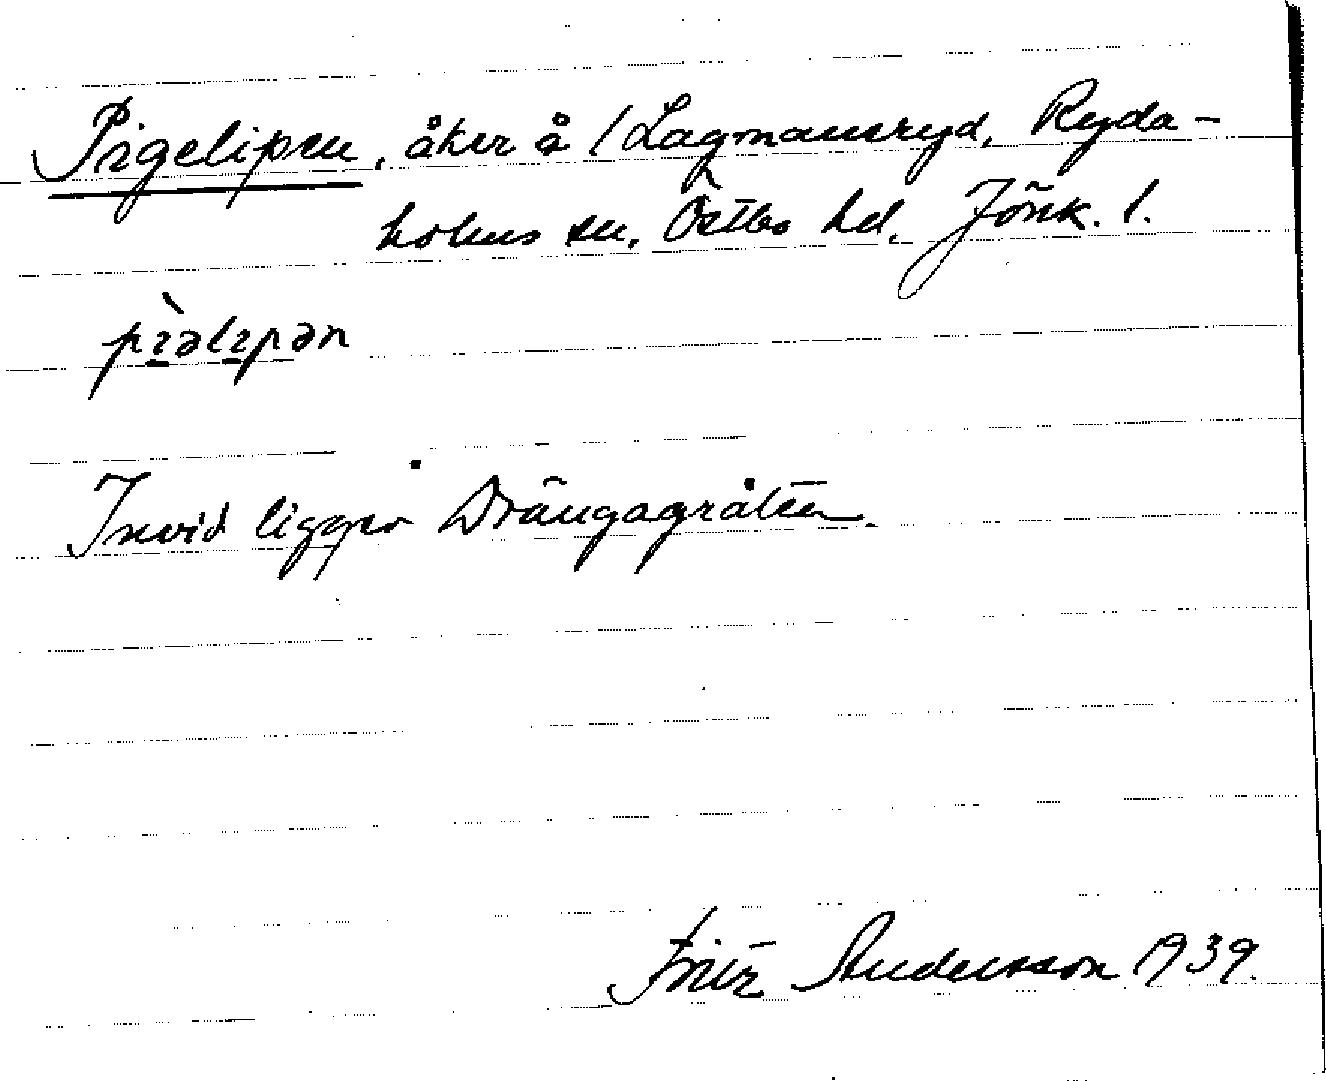 Pigelipen, åker å 1 Lagmansryd, Ryda-
holms sn, Östbo hd. Jönk. l.
pɪ̀əlɪpən
Invid ligger Drängagråten.
Fritz Andersson 1939.